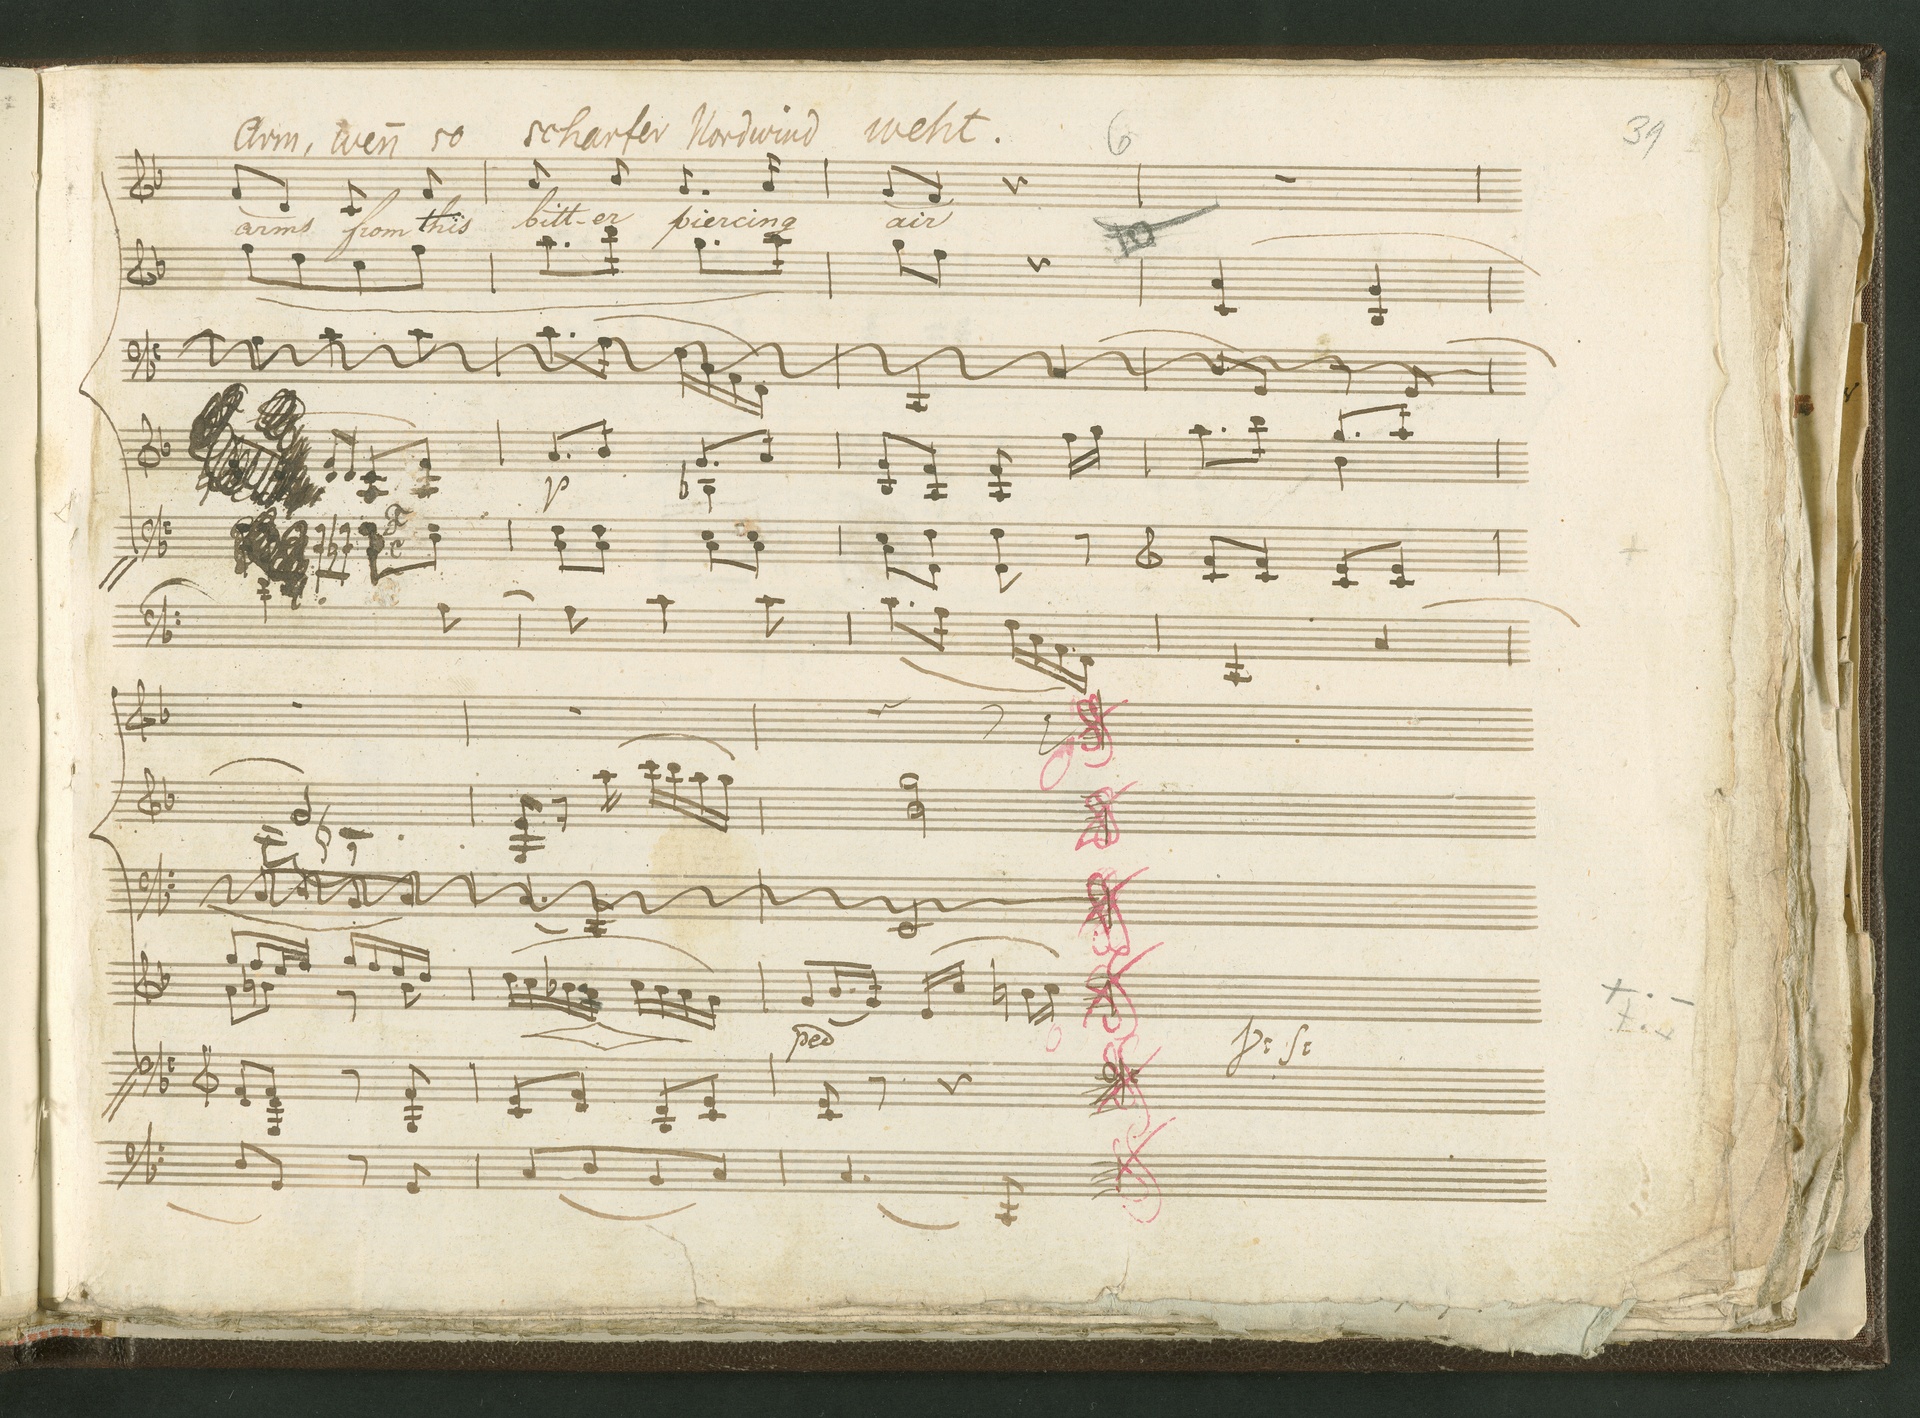 Arm, wen̄ so scharfer Nordwind weht. 6 39
arms from this bitt-er piercing air
p
ped